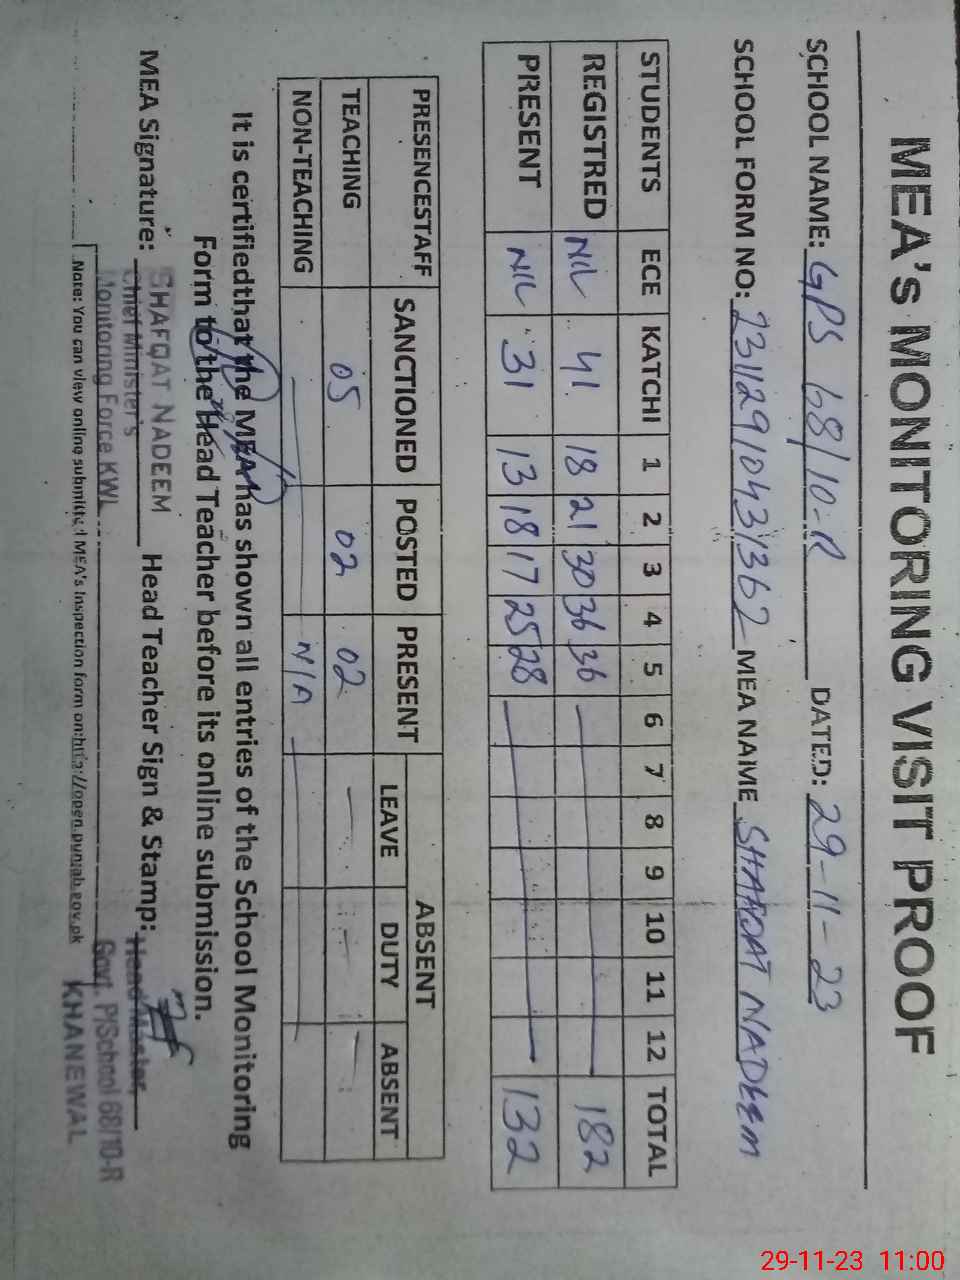 MEA's MONITORING VISIT PROOF
SCHOOL NAME: GPS 68/10-R DATED: 29-11-23
SCHOOL FORM NO: 23112910431362 MEA NAME SHAFQAT NADEEM
STUDENTS ECE KATCHI 1 2 3 4 5 6 7 8 9 10 11 12 TOTAL
REGISTRED NIL 41 18 21 30 36 36 182
PRESENT NIL 31 13 18 17 25 28 132
PRESENCESTAFF SANCTIONED POSTED PRESENT ABSENT
LEAVE DUTY ABSENT
TEACHING 05 02 02 — — —
NON-TEACHING N/A
It is certifiedthat the MEA has shown all entries of the School Monitoring
Form to the Head Teacher before its online submission.
MEA Signature: Head Teacher Sign & Stamp:
SHAFQAT NADEEM
Chief Minister's
Monitoring Force KWL
Head Master,
Govt. P/School 68/10-R
KHANEWAL
Note: You can view online submitted MEA's Inspection form on:http://open.punjab.gov.pk
29-11-23 11:00